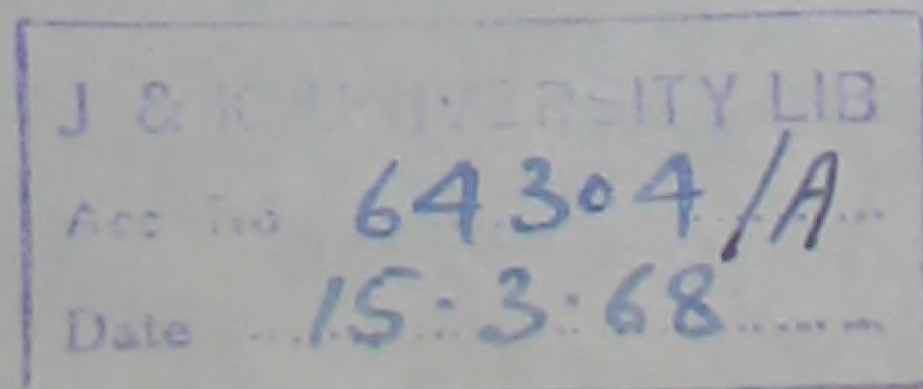 J & K UNIVERSITY LIB
Acc No 64304/A
Date 15.3.68